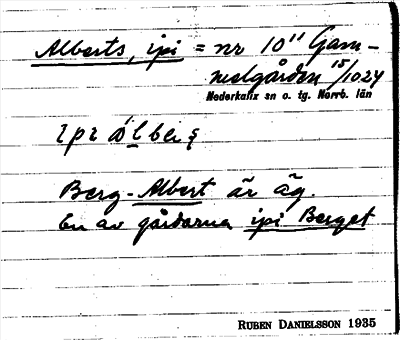 Alberts, ipi = nr 10" Gam-
melgården 15/1024
Nederkalix sn o. tg. Norrb. län
ipi ålbeiş
Berg-Albert är äg.
En av gårdarna ipi Berget
RUBEN DANIELSSON 1935